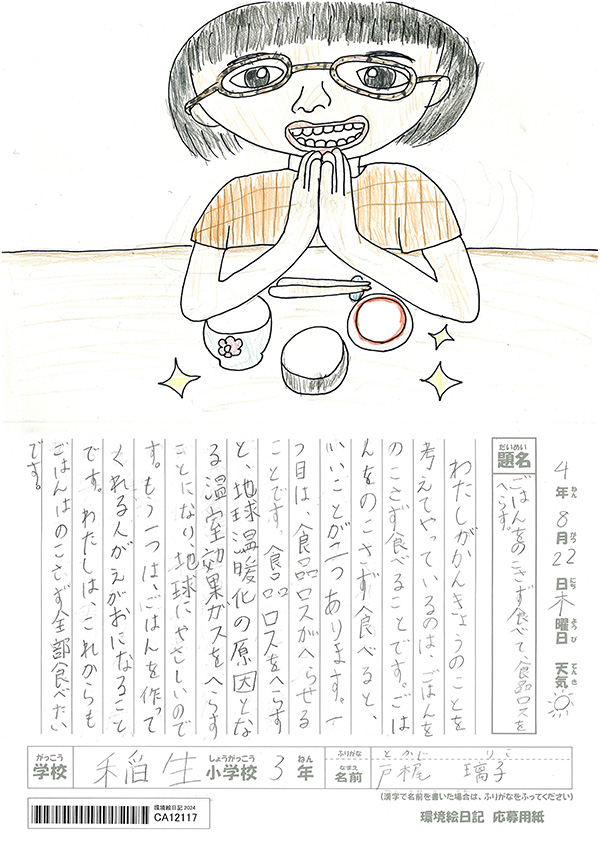 4年8月22日木曜日 天気
ねん がつ にち ようび てんき
だいめい
題名
ごはんをのこさず食べて、食品ロスを
へらす。
わたしがかんきょうのことを
考えてやっているのは、ごはんを
のこさず食べることです。ごは
んをのこさず食べると、
いいことが二つあります。一
つ目は、食品ロスがへらせる
ことです。食品ロスをへらす
と、地球温暖化の原因とな
る温室効果ガスをへらす
ことになり、地球にやさしいので
す。もう一つは、ごはんを作って
くれる人がえがおになること
です。わたしは、これからも
ごはんはのこさず全部食べたい
です。
がっこう
学校
稲生
しょうがっこう
小学校
3
ねん
年
ふりがな
とかじ りこ
なまえ
名前
戸梶 璃子
(漢字で名前を書いた場合は、ふりがなをふってください)
環境絵日記 2024
CA12117
環境絵日記 応募用紙